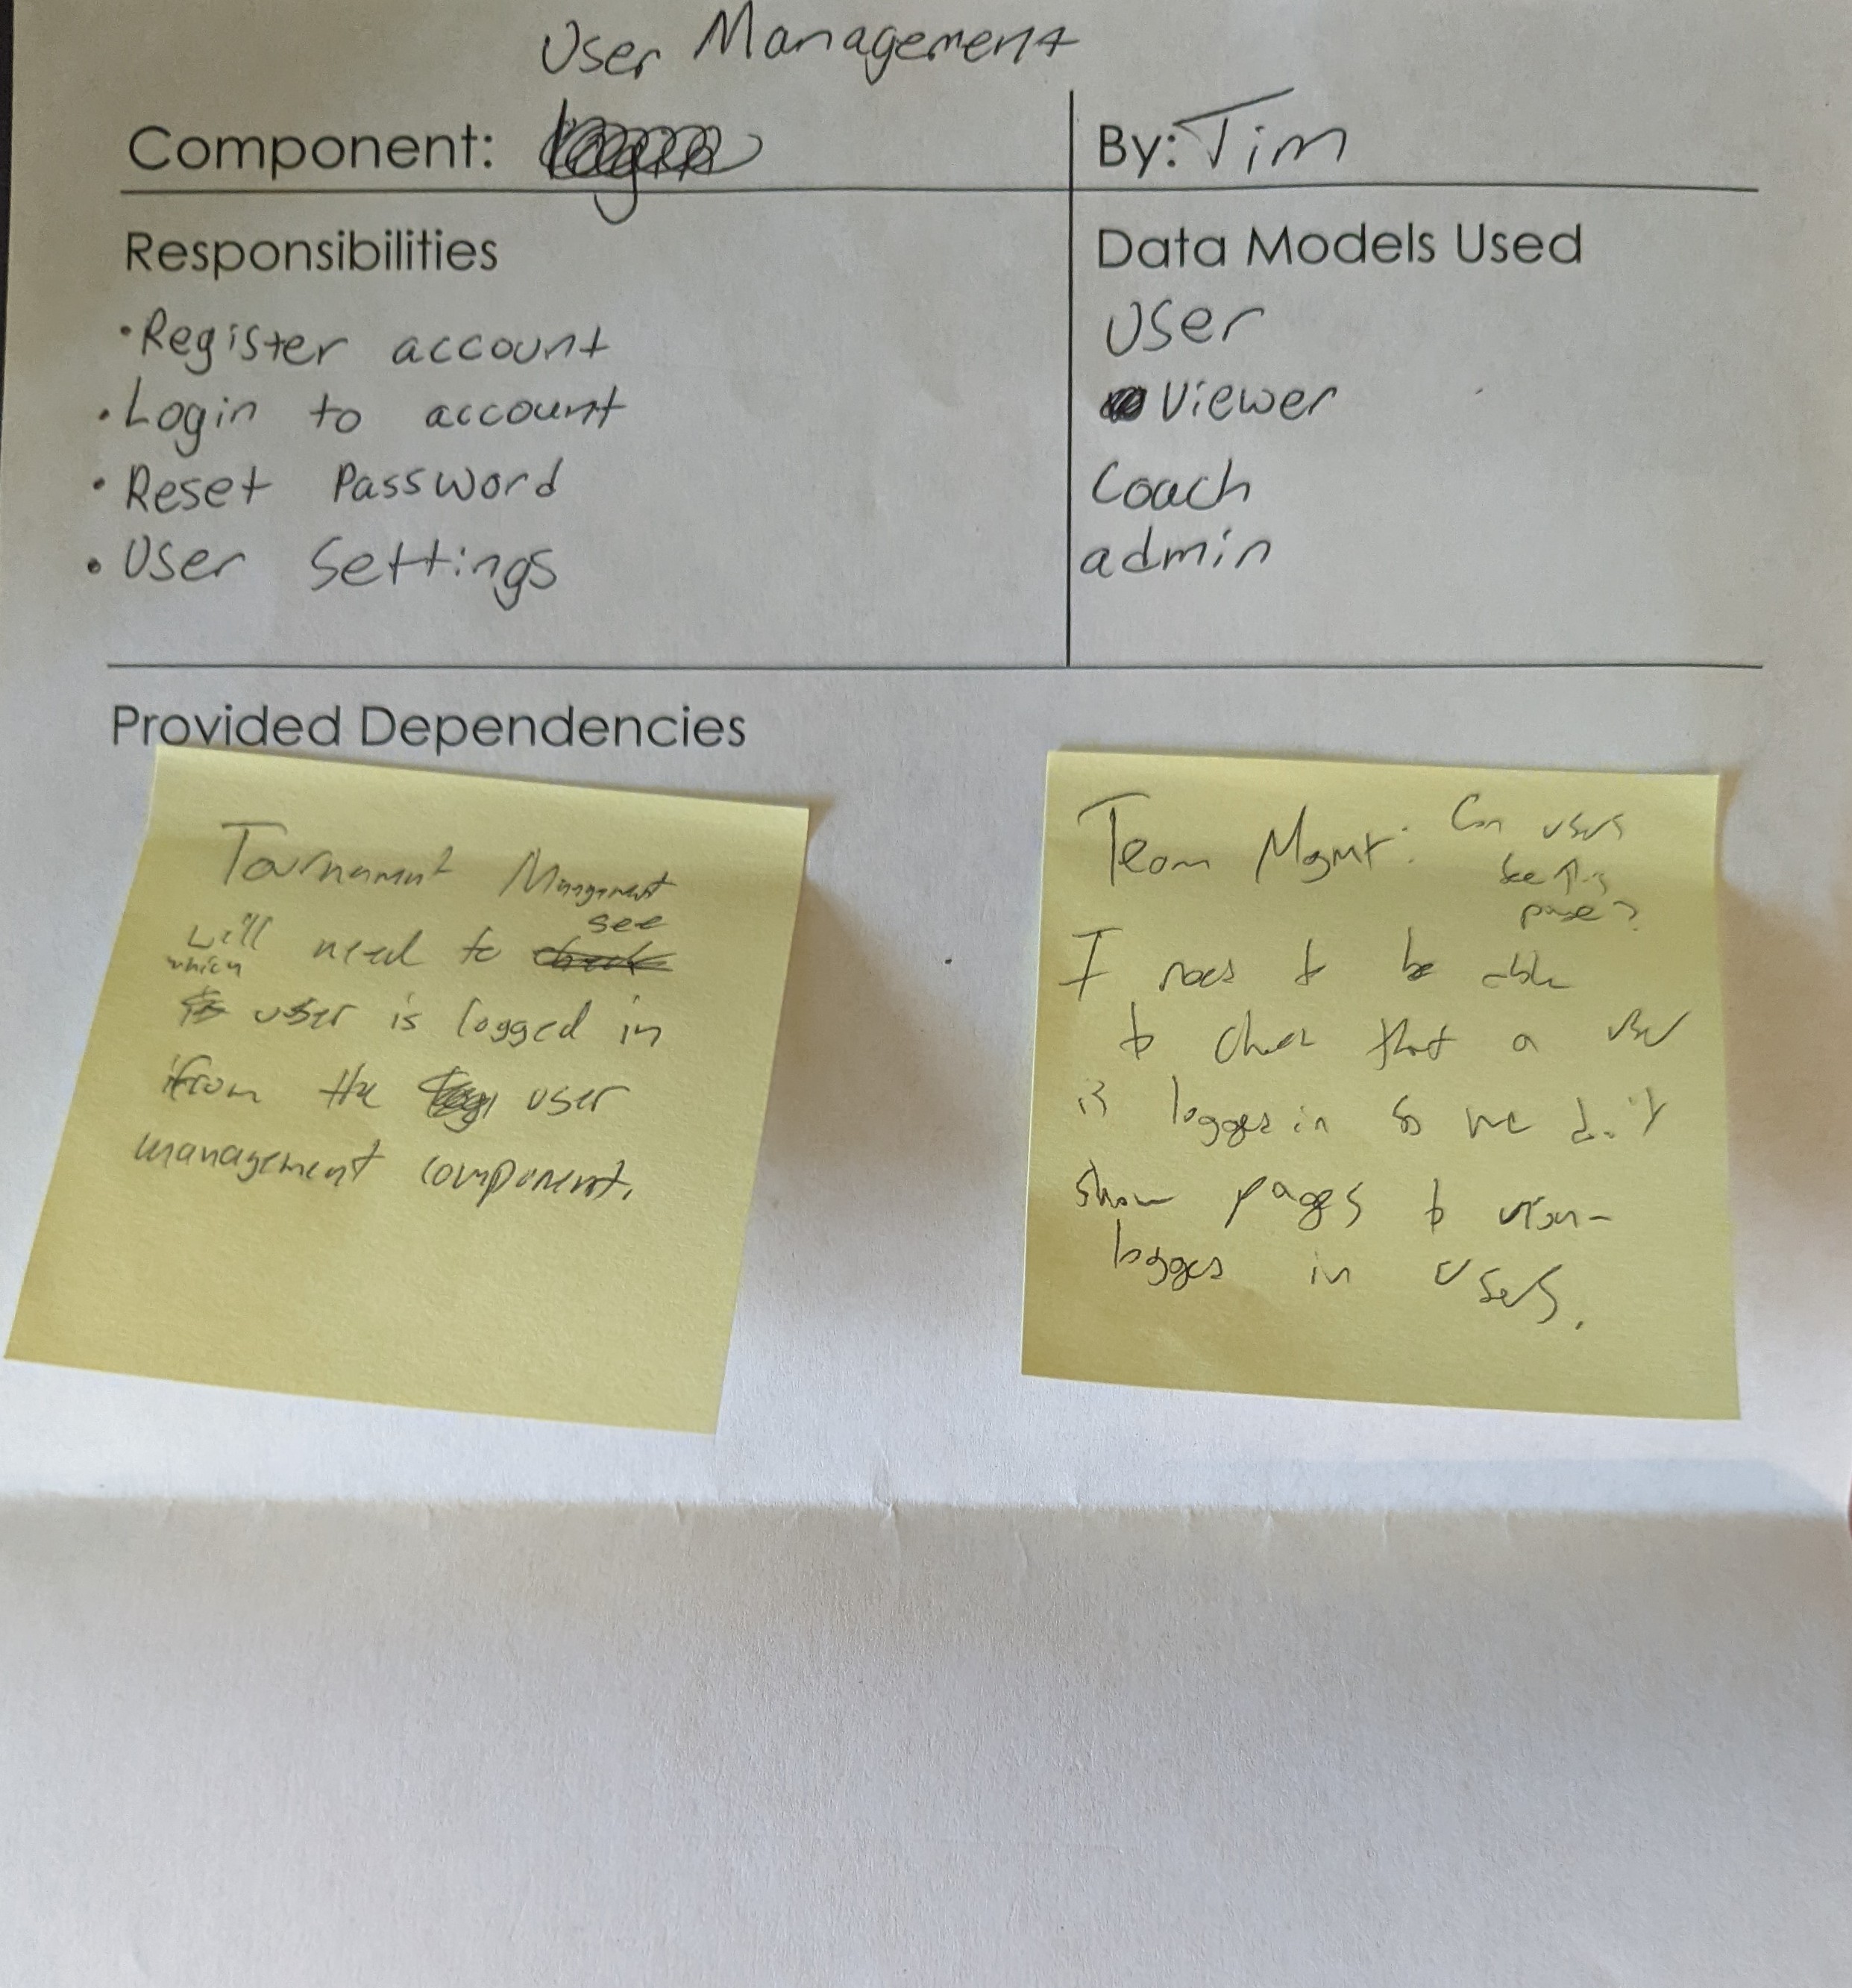 User Management
Component:
By: Tim
Responsibilities
• Register account
• Login to account
• Reset Password
• User Settings
Data Models Used
User
Viewer
Coach
admin
Provided Dependencies
Tournament Management
will need to see
which user is logged in
from the user
management component.
Team Mgmt: Can users
see this
page?
I need to be able
to check that a user
is logged in so we don't
show pages to non-
logged in users.